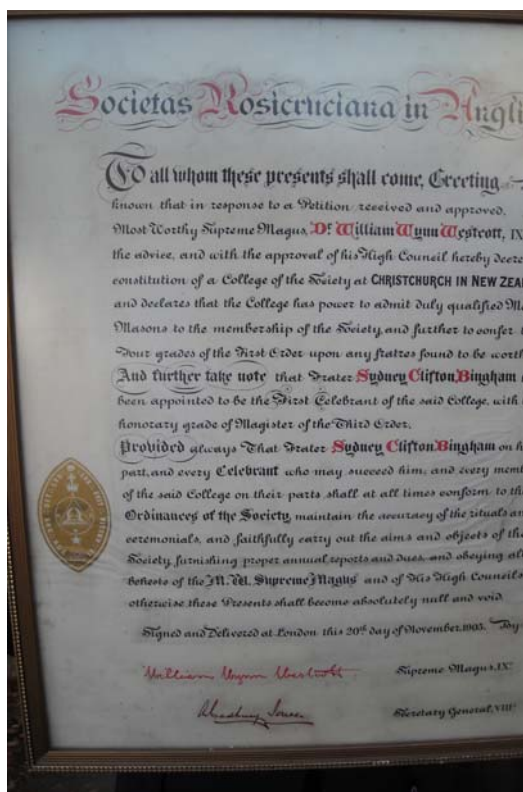 Societas Rosicruciana in Angli
To all whom these presents shall come, Greeting
known that in response to a Petition received and approved,
Most Worthy Supreme Magus, Dr. William Wynn Westcott, IX
the advice, and with the approval of his High Council hereby decre
constitution of a College of the Society at CHRISTCHURCH IN NEW ZEA
and declares that the College has power to admit duly qualified M
Masons to the membership of the Society, and further to confer t
Four grades of the First Order upon any fratres found to be worth
And further take note that Frater Sydney Clifton Bingham
been appointed to be the First Celebrant of the said College, with
honorary grade of Magister of the Third Order,
Provided always That Frater Sydney Clifton Bingham on h
part, and every Celebrant who may succeed him, and every mem
of the said College on their parts shall at all times conform to th
Ordinances of the Society, maintain the accuracy of the rituals an
ceremonials, and faithfully carry out the aims and objects of the
Society, furnishing proper annual reports and dues, and obeying al
behests of the M. W. Supreme Magus and of His High Council
otherwise these Presents shall become absolutely null and void.
Signed and Delivered at London this 20th day of November, 1905. By
William Wynn Westcott Supreme Magus, IX°
Secretary General, VIII°